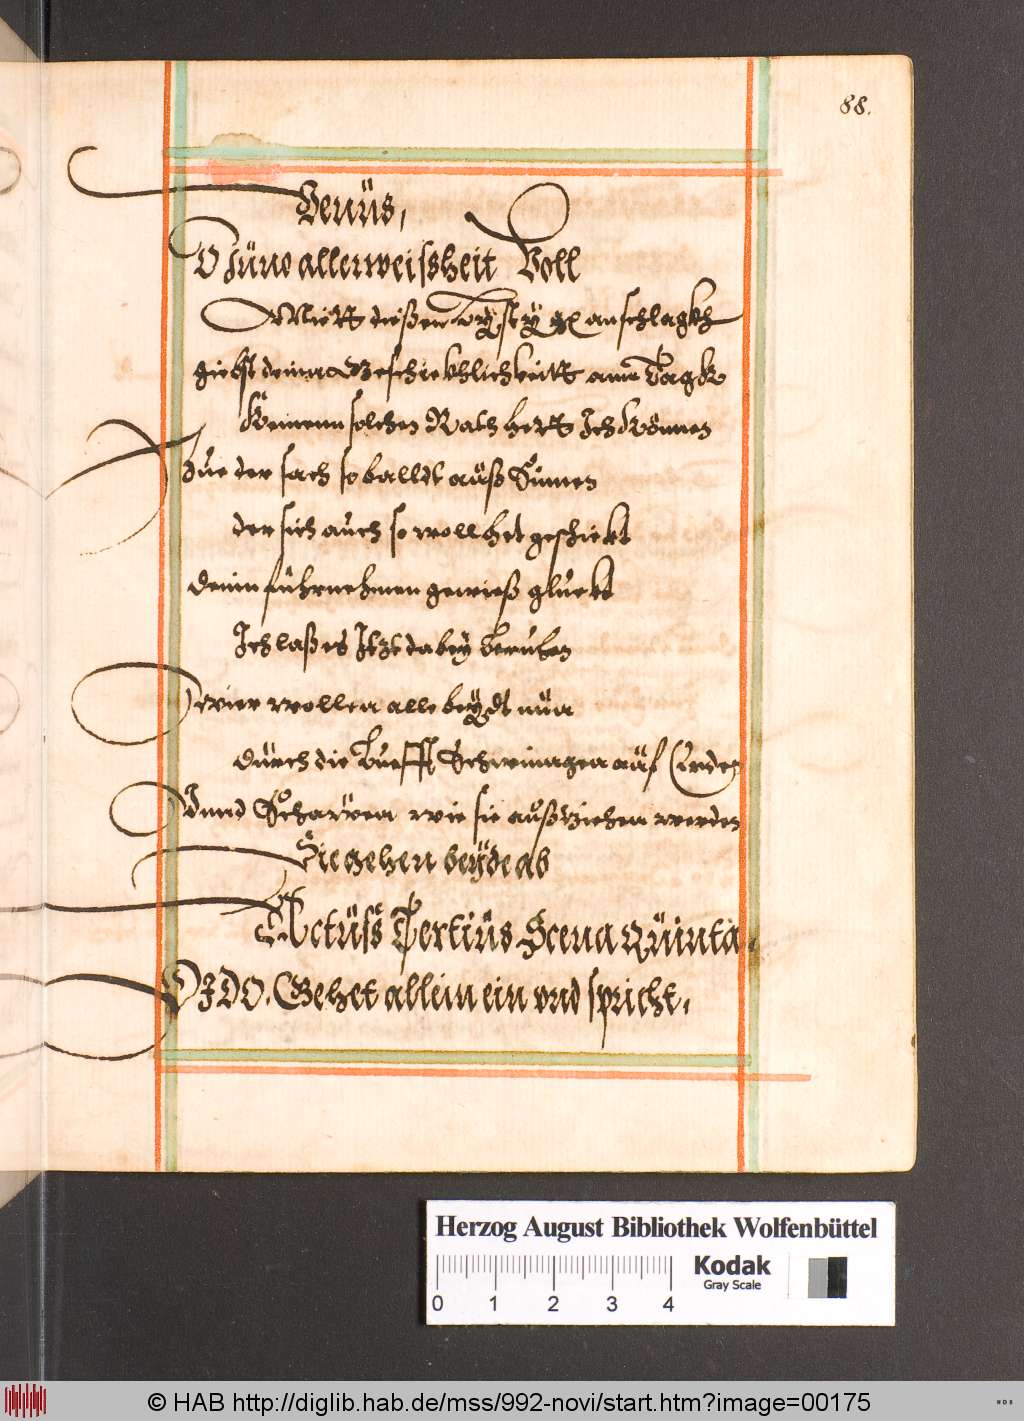 88.
Venüs,
O Jüno aller weissheit Voll
Mitt dießen anschlagkh
giebst deinn Geschickhlichkeitt ann Tagkh
Keinenn solchen Rath hett Ich können
Zue der sach so balldt auß Sinnen
der sich auch so woll het geschickt
Deinn fuhrnehmen gewieß gluckt
Ich laß es Itzt dabey beruhen
wier wollen alle beÿdt nün
dürch die Luefft Schwingen aüf Erden
Vnnd Schawen wie sie außziehen werden
Sie gehen beÿde ab
Actüss Tertiüs Scena Qüinta.
DIDO. Gehet allein ein vnd spricht.
Herzog August Bibliothek Wolfenbüttel
Kodak
Gray Scale
0 1 2 3 4
© HAB http://diglib.hab.de/mss/992-novi/start.htm?image=00175